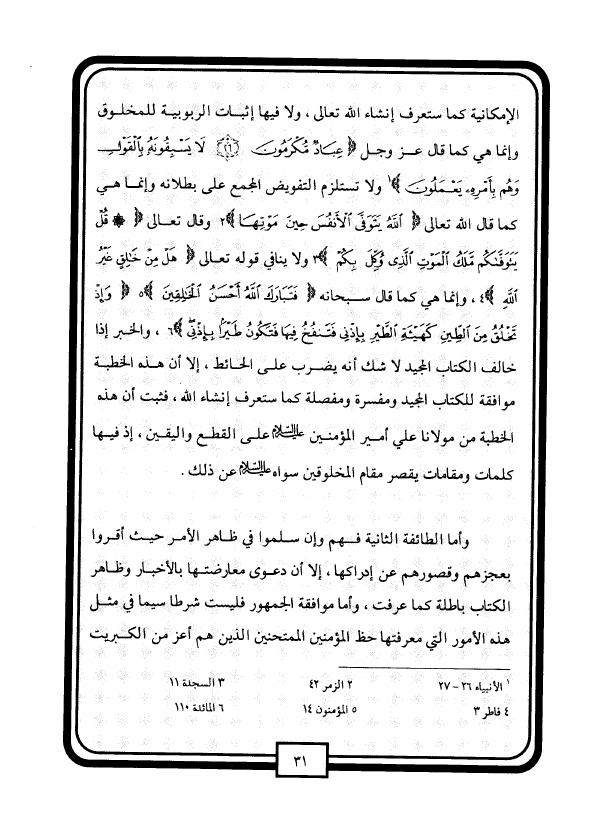 الإمكانية كما ستعرف إنشاء الله تعالى ، ولا فيها إثبات الربوبية للمخلوق
وإنما هي كما قال عز وجل ﴿ عِبَادٌ مُّكْرَمُونَ ﴿٢٦﴾ لَا يَسْبِقُونَهُ بِالْقَوْلِ
وَهُم بِأَمْرِهِ يَعْمَلُونَ ﴾١ ولا تستلزم التفويض المجمع على بطلانه وإنما هي
كما قال الله تعالى ﴿ اللَّهُ يَتَوَفَّى الْأَنفُسَ حِينَ مَوْتِهَا ﴾٢ وقال تعالى ﴿ ۞ قُلْ
يَتَوَفَّاكُم مَّلَكُ الْمَوْتِ الَّذِي وُكِّلَ بِكُمْ ﴾٣ ولا ينافي قوله تعالى ﴿ هَلْ مِنْ خَالِقٍ غَيْرُ
اللَّهِ ﴾٤ ، وإنما هي كما قال سبحانه ﴿ فَتَبَارَكَ اللَّهُ أَحْسَنُ الْخَالِقِينَ ﴾٥ ﴿ وَإِذْ
تَخْلُقُ مِنَ الطِّينِ كَهَيْئَةِ الطَّيْرِ بِإِذْنِي فَتَنفُخُ فِيهَا فَتَكُونُ طَيْرًا بِإِذْنِي ﴾٦ ، والخبر إذا
خالف الكتاب المجيد لا شك أنه يضرب على الحائط ، إلا أن هذه الخطبة
موافقة للكتاب المجيد ومفسرة ومفصلة كما ستعرف إنشاء الله ، فثبت أن هذه
الخطبة من مولانا علي أمير المؤمنين عليه السلام على القطع واليقين ، إذ فيها
كلمات ومقامات يقصر مقام المخلوقين سواه عليه السلام عن ذلك .
وأما الطائفة الثانية فهم وإن سلموا في ظاهر الأمر حيث أقروا
بعجزهم وقصورهم عن إدراكها ، إلا أن دعوى معارضتها بالأخبار وظاهر
الكتاب باطلة كما عرفت ، وأما موافقة الجمهور فليست شرطا سيما في مثل
هذه الأمور التي معرفتها حظ المؤمنين الممتحنين الذين هم أعز من الكبريت
١ الأنبياء ٢٦ – ٢٧ ٢ الزمر ٤٢ ٣ السجدة ١١
٤ فاطر ٣ ٥ المؤمنون ١٤ ٦ المائدة ١١٠
٣١